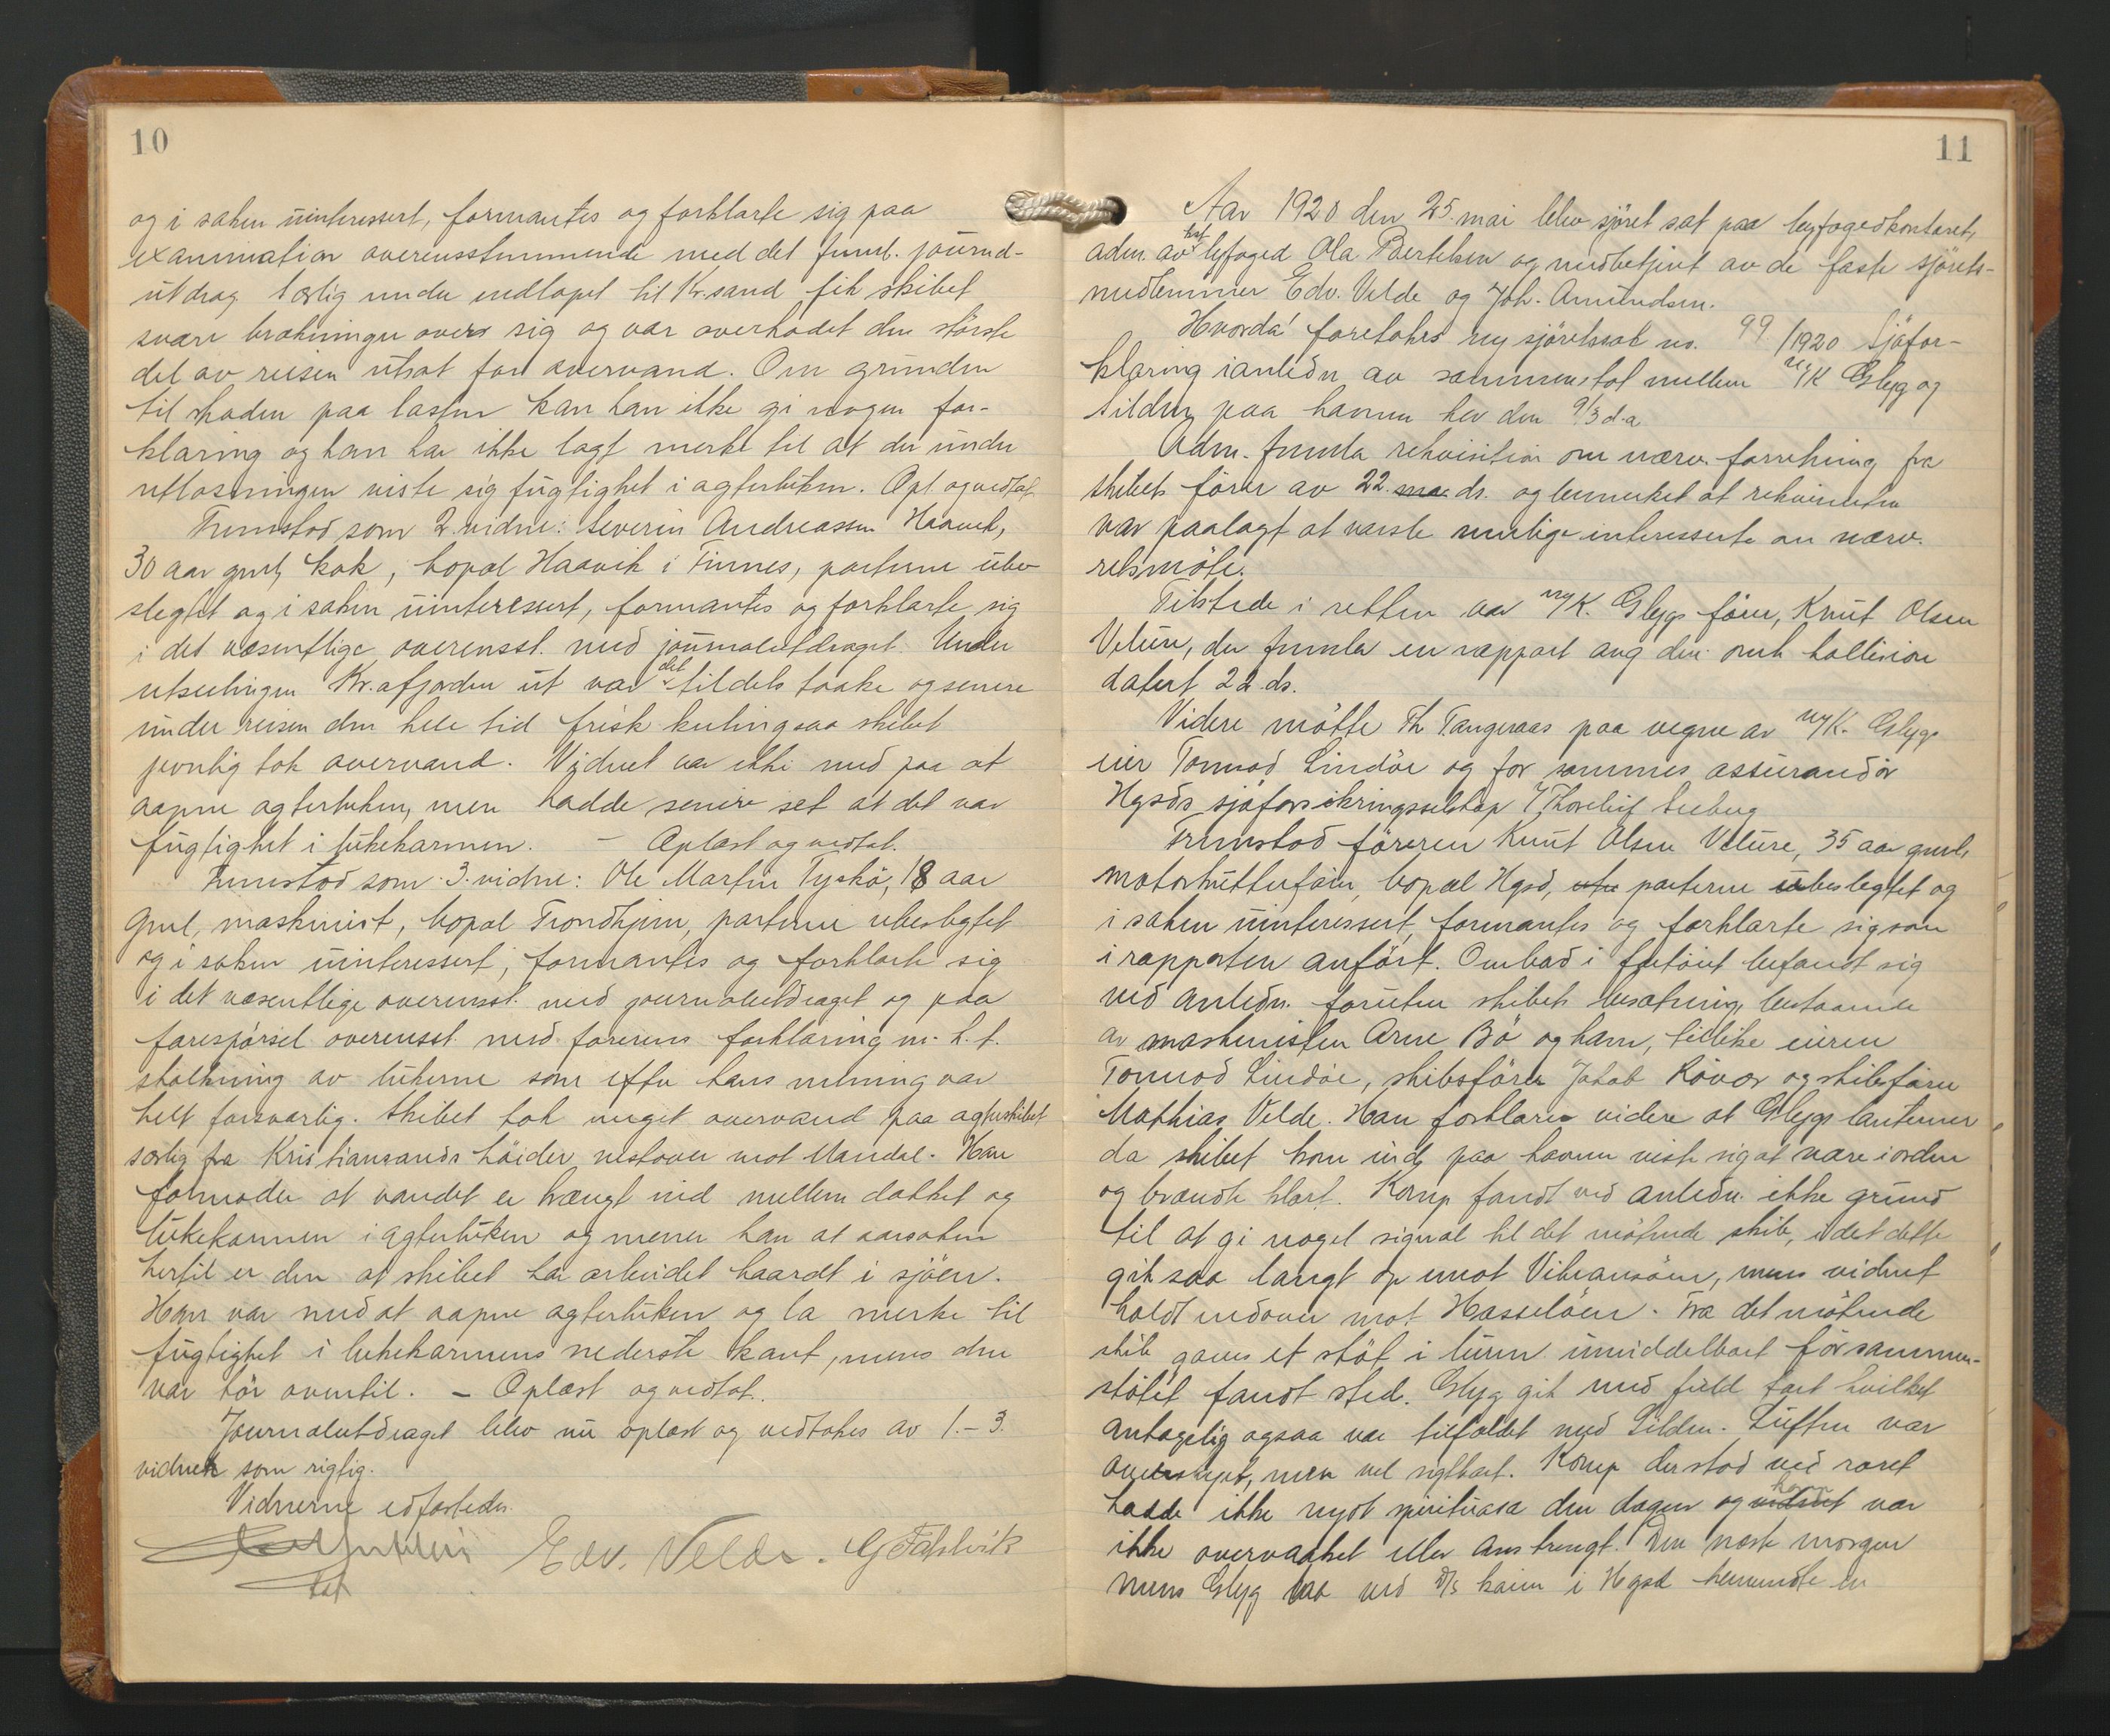 10
og i saken uinteressert, formantes og forklarte sig paa
examination overensstemmende med det freml. journal-
utdrag. Særlig under indløpet til Kr.sand fik skibet
svære brækninger over sig og var overhodet den største
del av reisen utsat for overvand. Om grunden
til skaden paa lasten kan han ikke gi nogen for-
klaring og han har ikke lagt merke til at der under
utlosningen viste sig fugtighet i agterluken. Opl. og vedtat.
Fremstod som 2. vidne: Severin Andreassen Haavik,
30 aar gml, kok, bopæl Haavik i Finnes, parterne ube-
slegtet og i saken uinteressert, formantes og forklarte sig
i det væsentlige overensst. med journalutdraget. Under
utseilingen Kr.afjorden ut var det tildels taake og senere
under reisen den hele tid frisk kuling saa skibet
jevnlig tok overvand. Vidnet var ikke med paa at
aapne agterluken, men hadde senere set at det var
fugtighet i lukekarmen. – Oplæst og vedtat.
Fremstod som 3. vidne: Ole Martin Tyskø, 18 aar
gml, maskinist, bopæl Trondhjem, parterne ubeslegtet
og i saken uinteressert, formantes og forklarte sig
i det væsentlige overensst. med journalutdraget og paa
forespørsel overensst. med førerens forklaring m. h. t.
skalkning av lukerne som efter hans mening var
helt forsvarlig. Skibet tok meget overvand paa agterskibet
særlig fra Kristiansands høider vestover mot Mandal. Han
formoder at vandet er trængt ind mellem dækket og
lukekarmen i agterluken og mener han at aarsaken
hertil er den at skibet har arbeidet haardt i sjøen.
Han var med at aapne agterluken og la merke til
fugtighet i lukekarmens nederste kant, mens den
var tør oventil. – Oplæst og vedtat.
Journalutdraget blev nu oplæst og vedtokes av 1.–3.
vidner som rigtig.
Vidnerne edfæstedes.
Edv. Velde. G Fahlvik
11
Aar 1920 den 25. mai blev sjøret sat paa byfogedkontoret,
adm. av kst byfoged Ola Bertelsen og medbetjent av de faste sjørets-
medlemmer Edv. Velde og Joh. Amundsen.
Hvorda! foretokes ny sjøretssak no. 99/1920 Sjøfor-
klaring i anledn. av sammenstøt mellem M/K Glyg og
Silden paa havnen her den 9/3 d.a
Adm. fremla rekvisition om nærv. forretning fra
skibets fører av 22. ma ds. og bemerket at rekvirenten
var paalagt at varsle mulige interesserte om nærv.
retsmøte.
Tilstede i retten var M/K. Glygs fører, Knut Olsen
Veture, der fremla en rapport ang. den omh. kollision
datert 22 ds.
Videre møtte Th. Tangeraas paa vegne av M/K. Glygs
eier Tormod Lindøe og for sammes assurandør
Hgsds sjøforsikringsselskap v/ Thorleif Seeberg
Fremstod føreren Knut Olsen Veture, 35 aar gml,
motorkutterfører, bopæl Hgsd, parterne ubeslegtet og
i saken uinteressert, formantes og forklarte sig som
i rapporten anført. Ombord i fartøiet befandt sig
ved anledn. foruten skibets besætning, bestaaende
av maskinisten Arne Bø og ham, tillike eieren
Tormod Lindøe, skibsfører Jakob Røvær og skibsfører
Mathias Velde. Han forklarer videre at Glygs lanterner
da skibet kom ind paa havnen viste sig at være i orden
og brændte klart. Komp. fandt ved anledn. ikke grund
til at gi noget signal til det møtende skib, idet dette
gik saa langt op mot Vibransøen, mens vidnet
holdt nedover mot Hasseløen. Fra det møtende
skib gaves et støt i luren umiddelbart før sammen-
støtet fandt sted. Glyg gik med fuld fart hvilket
antagelig ogsaa var tilfældet med Silden. Luften var
overskyet, men vel sigtbart. Komp. der stod ved roret
hadde ikke nydt spirituosa den dagen og han var
ikke overvaaket eller anstrengt. Den næste morgen
mens Glyg laa ved D/S kaien i Hgsd bemerkede en